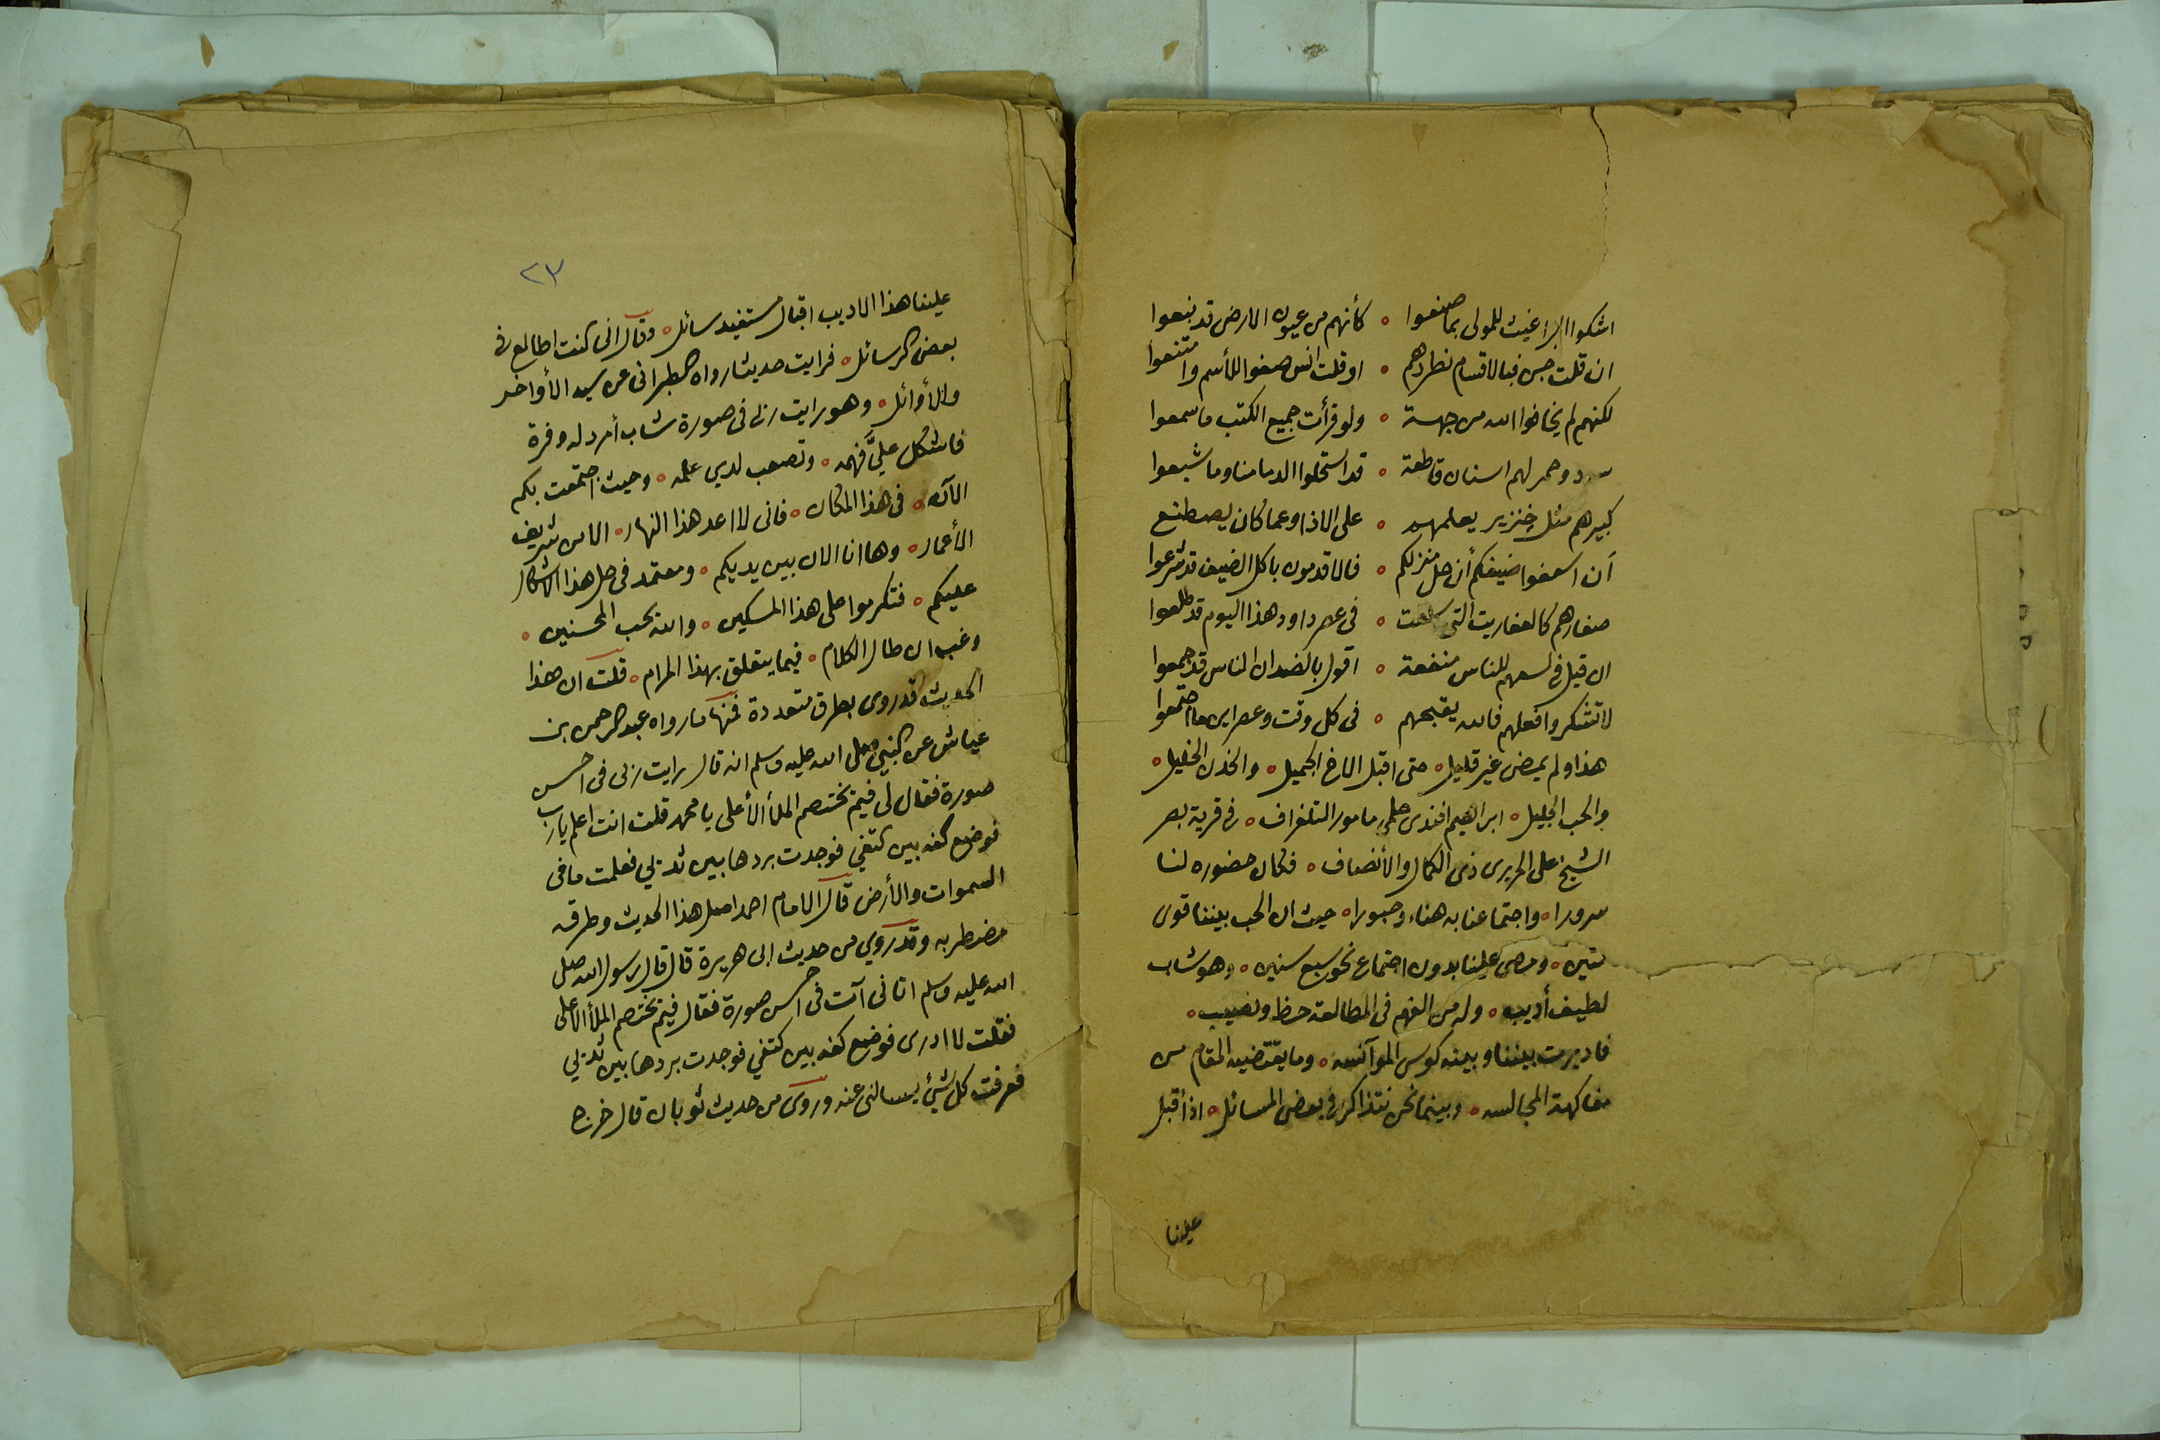 اشكوا البراغيث للمولى بما صنعوا ه كأنهم من عيون الارض قد نبعوا
ان قلت جن فبالاقسام نطردهم ه او قلت انس صغوا للأسم وامتنعوا
لكنهم لم يخافوا الله من جهة ه ولو قرأت جميع الكتب ما سمعوا
سود وحمر لهم اسنان قاطعة ه قد استحلوا الدما منا وما شبعوا
كبيرهم مثل خنزير يعلمهم ه على الاذا وعما كان يصطنع
أن اسعفوا ضيفكم أن حل منزلكم ه فالاقدمون باكل الضيف قد شرعوا
صغارهم كالعفاريت التي ه في عصر داود هذا اليوم قد طلعوا
ان قيل في لسعهم للناس منفعة ه اقول بالضد ان الناس قد جمعوا
لا تشكروا فعلهم فالله يقبحهم ه في كل وقت وعصر اين ما اجتمعوا
هذا ولم يمض غير قليل ه حتى اقبل الاخ الجميل ه والخدن الخليل ه
والحب الجليل ه ابراهيم افندى حلمي مامور التلغراف ه في قرية بصر
الشيخ على الحريرى ذى الكمال والأنصاف ه فكان حضوره لنا
سرورا ه واجتماعنا به هناء وحبورا ه حيث ان الحب بيننا قوى
متين ه ومضى علينا بدون اجتماع نحو سبع سنين ه وهو شاب
لطيف أديب ه وله من الفهم في المطالعة حظ ونصيب ه
فاديرت بيننا وبينه كوس الموآنسه ه وما يقتضيه المقام من
مفاكهة المجالسه ه وبينما نحن نتذاكر في بعض المسائل ه اذ أقبل
علينا
٢٣
علينا هذا الاديب اقبال مستفيد سائل ه وقال انى كنت اطالع في
بعض الرسائل ه فرايت حديثا رواه الطبرانى عن سيد الأواخر
والأوائل ه وهو رايت ربى في صورة شاب أمرد له وفرة
فاشكل عليَّ فهمه ه وتصعب لدي علمه ه وحيث اجتمعت بكم
الآن ه في هذا المكان ه فانى لا اعد هذا النهار ه الا من شريف
الأعمار ه وها انا الان بين يديكم ه ومعتمد في حل هذا الاشكال
عليكم ه فتكرموا على هذا المسكين ه والله يحب المحسنين ه
وغب ان طال الكلام ه فيما يتعلق بهذا المرام ه قلت ان هذا
الحديث قد روى بطرق متعددة فمنها ما رواه عبد الرحمن بن
عياش عن النبي صلى الله عليه وسلم انه قال رايت ربى فى احسن
صورة فقال لى فيم يختصم الملأ الأعلى يا محمد قلت انت اعلم يارب
فوضع كفه بين كتفي فوجدت بردها بين ثديي فعلمت ما في
السموات والأرض قال الامام احمد اصل هذا الحديث وطرقه
مضطربه وقد روي من حديث ابى هريرة قال قال رسول الله صلى
الله عليه وسلم اتانى آت فى احسن صورة فقال فيم يختصم الملأ الأعلى
فقلت لا ادرى فوضع كفه بين كتفي فوجدت بردها بين ثديي
فعرفت كل شيئ يسالنى عنه وروى من حديث ثوبان قال خرج